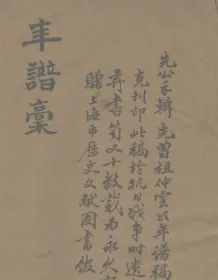 先公手輯先曾祖仲雲公年譜稿
克刊印此稿於抗日戰爭時遺
書笥又十數載為永久
贈上海市歷史文獻圖書館
年譜稾